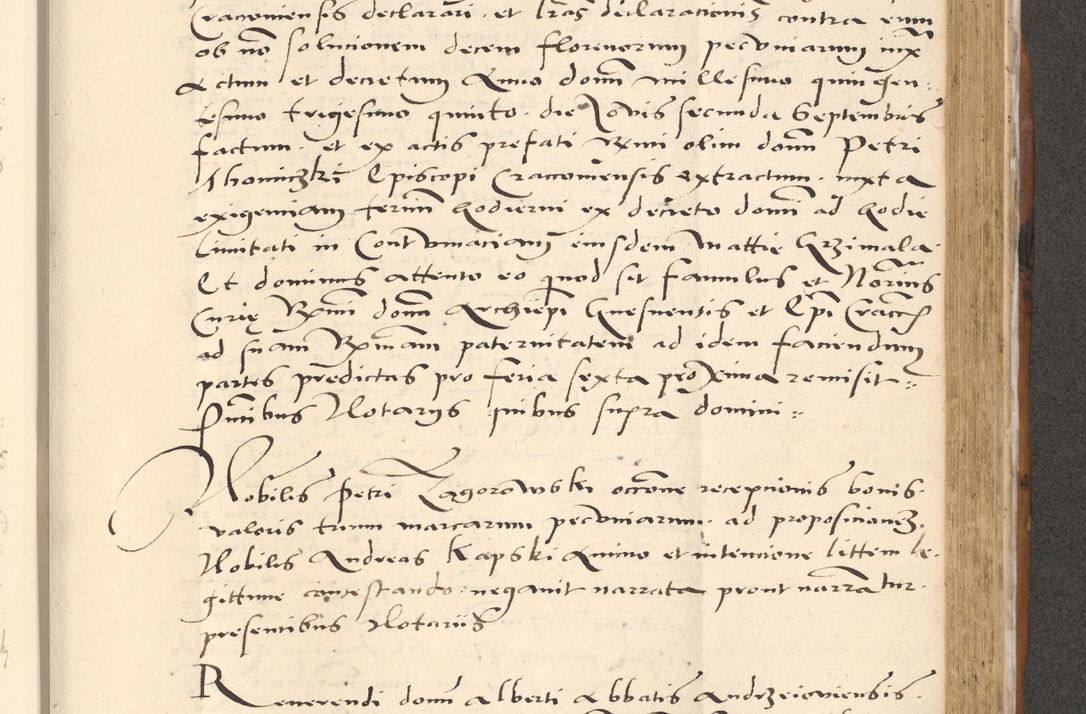 Cracoviensis declarari et lras declarationis contra eum
ob no solucionem decem florenorum pecuniarum iux
Actum et decretum Anno domi millesimo quingen-
tesimo trigesimo quinto die Jovis secunda Septembris
factum et ex actis prefati Rxmi olim domi Petri
Thomiczki Episcopi Cracoviensis extractum iuxta
exigenciam termi hodierni ex decreto domi ad hodie
limitati in Contumaciam eiusdem Mattie Grzimala
Et dominus attento eo quod sit famulus et Norius
Curię Rxmi domi Archiepi Gnesnensis et Epi Cracc
ad suam Rxmam paternitatem ad idem faciendum
partes predictas pro feria sexta proxima remisit
Pntibus Notarijs quibus supra domini
Nobilis Petri Zagorowski occone recepcionis bovis
valoris trium marcarum pecuniarum ad proposicionem
Nobilis Andreas Kapski animo et intencione littem le-
gittime contestando negavit narrata prout narrantur
presentibus Notariis
Reverendi domi Alberti Abbatis Andrzeioviensis